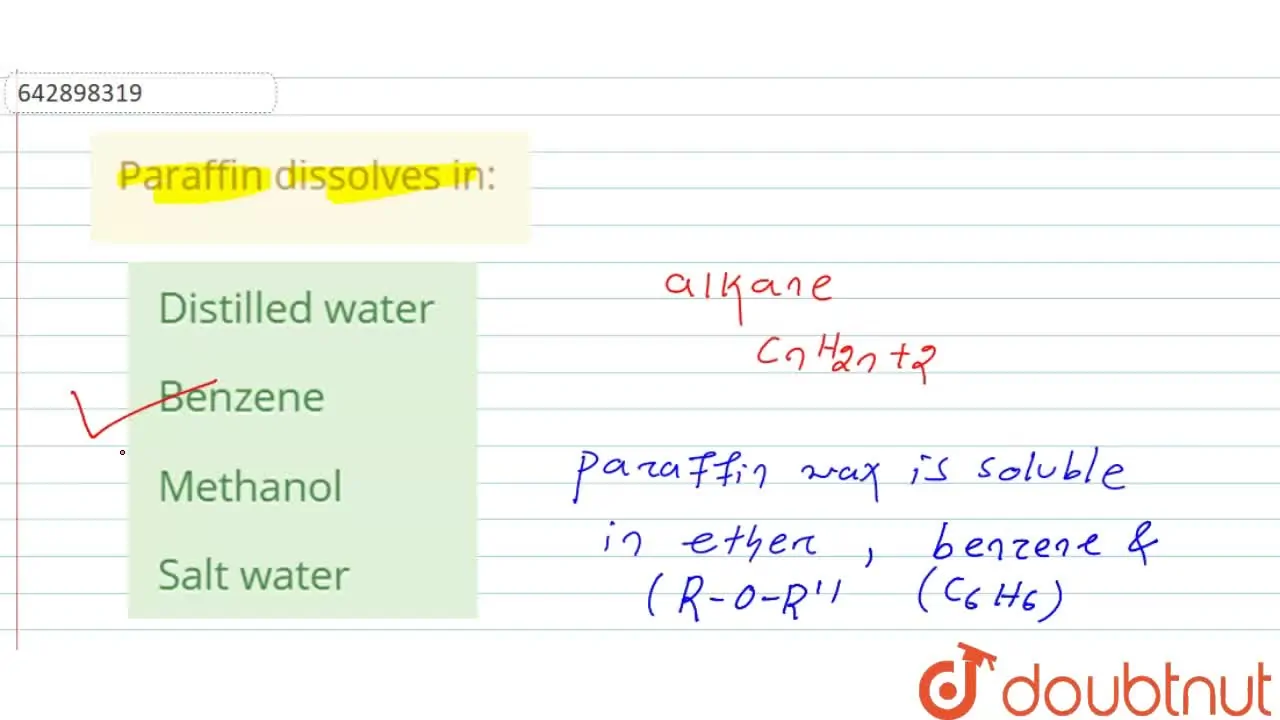 642898319
Paraffin dissolves in:
Distilled water
Benzene
Methanol
Salt water
alkane
CnH2n+2
paraffin wax is soluble
in ether, benzene &
(R-O-R'') (C6H6)
doubtnut